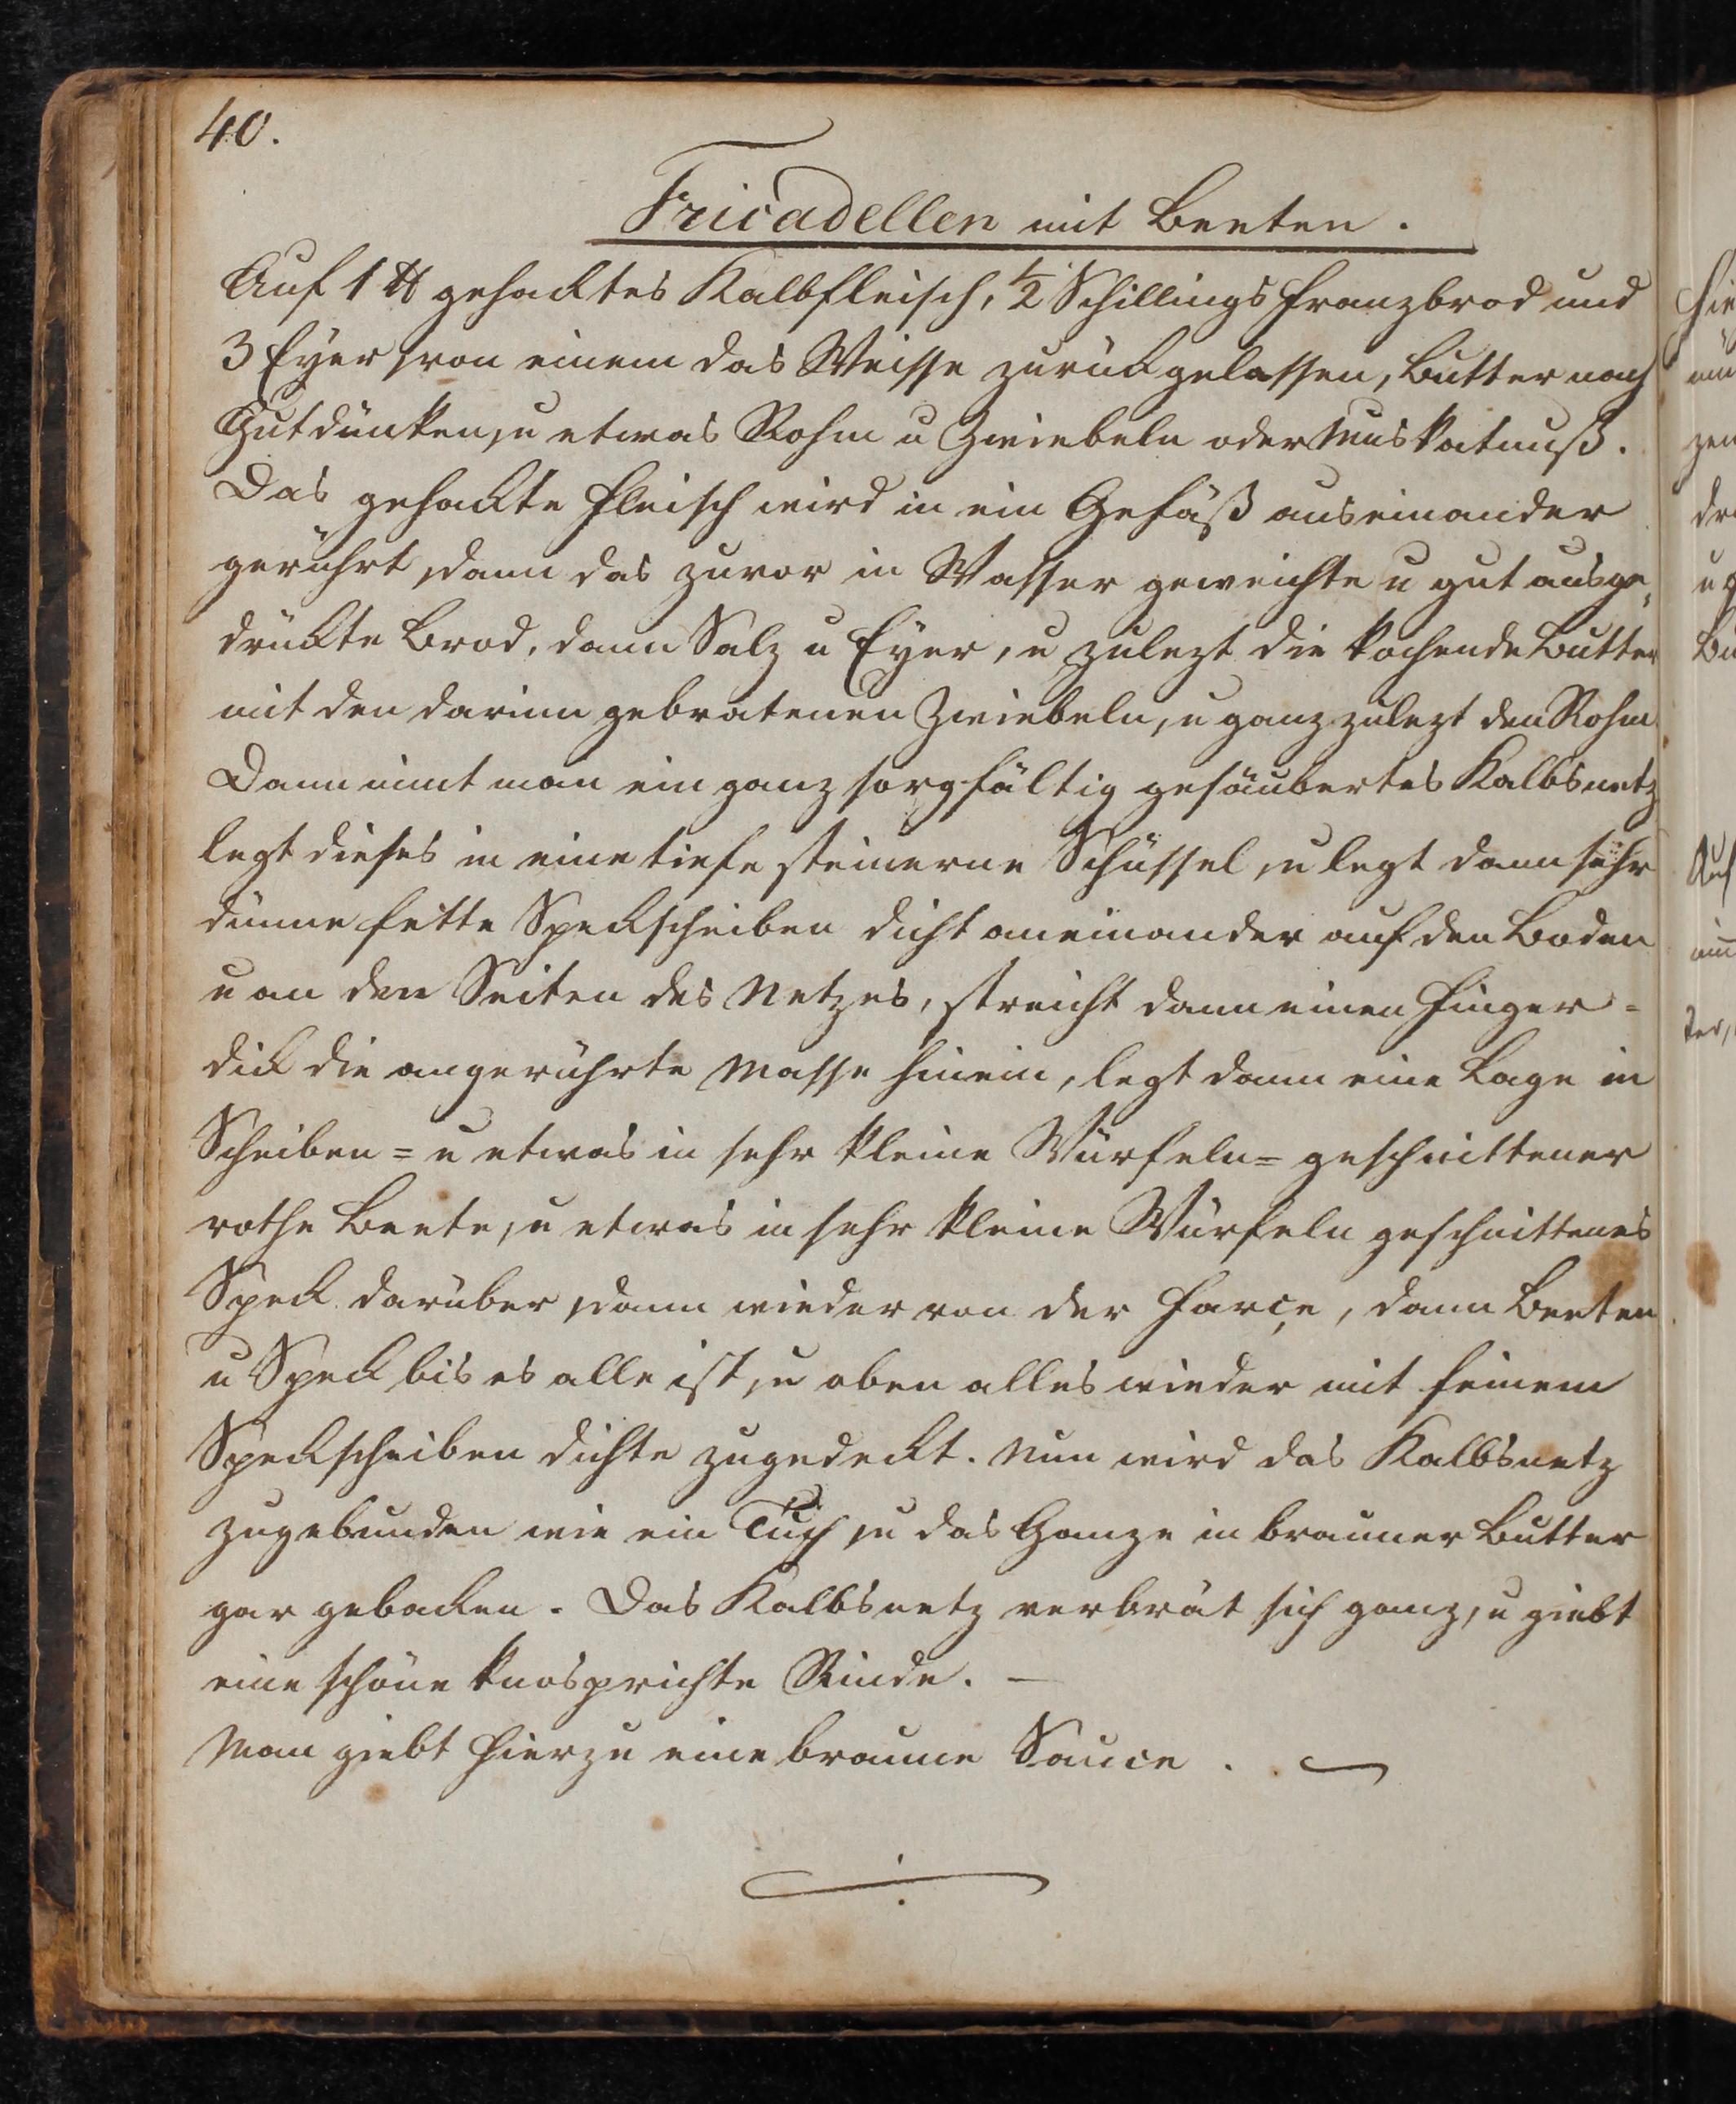 40.
Fricadellen mit Beeten.
Auf 1 ℔ gehacktes Kalbfleisch, 1/2 Schillings Franzbrod und
3 Eyer, von einem das Weisse zurückgelassen, Butter nach
Gutdünken, u etwas Rohm u Zwiebeln oder Muskatnuß.
Das gehackte Fleisch wird in ein Gefäß auseinander
gerührt, dann das zuvor in Wasser geweichte u gut ausge„
drückte Brod, dann Salz u Eyer, u zulezt die kochende Butter
mit den darinn gebratenen Zwiebeln, u ganz zulezt den Rohm
Dann nimt man ein ganz sorgfältig gesäubertes Kalbsnetz
legt dieses in eine tiefe steinerne Schüssel, u legt dann sehr
dünne fette Speckscheiben dicht aneinander auf den Boden
u an den Seiten des Netzes, streicht dann einen Finger=
dick die angerührte Masse hinein, legt dann eine Lage in
Scheiben= u etwas in sehr kleine Würfeln= geschnittener
rothe Beete, u etwas in sehr kleine Würfeln geschnittenes
Speck darüber, dann wieder von der Farçe, dann Beeten
u Speck bis es alle ist, u oben alles wieder mit feinem
Speckscheiben dichte zugedeckt. Nun wird das Kalbsnetz
zugebunden wie ein Tuch, u das Ganze in brauner Butter
gar gebacken. Das Kalbsnetz verbrät sich ganz, u giebt
eine schöne knosprichte Rinde. —
Man giebt hierzu eine braune Sauce.